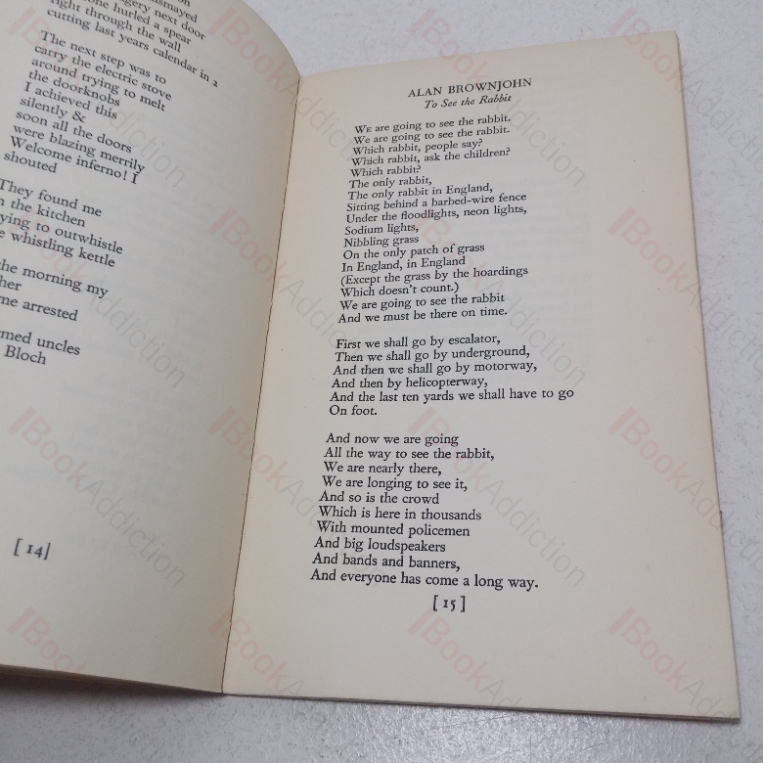 right through the wall
cutting last years calendar in 2
The next step was to
carry the electric stove
around trying to melt
the doorknobs
I achieved this
silently &
soon all the doors
were blazing merrily
Welcome inferno! I
shouted
They found me
the kitchen
to outwhistle
whistling kettle
the morning my
me arrested
uncles
Bloch
[ 14]
ALAN BROWNJOHN
To See the Rabbit
WE are going to see the rabbit.
We are going to see the rabbit.
Which rabbit, people say?
Which rabbit, ask the children?
Which rabbit?
The only rabbit,
The only rabbit in England,
Sitting behind a barbed-wire fence
Under the floodlights, neon lights,
Sodium lights,
Nibbling grass
On the only patch of grass
In England, in England
(Except the grass by the hoardings
Which doesn't count.)
We are going to see the rabbit
And we must be there on time.
First we shall go by escalator,
Then we shall go by underground,
And then we shall go by motorway,
And then by helicopterway,
And the last ten yards we shall have to go
On foot.
And now we are going
All the way to see the rabbit,
We are nearly there,
We are longing to see it,
And so is the crowd
Which is here in thousands
With mounted policemen
And big loudspeakers
And bands and banners,
And everyone has come a long way.
[ 15 ]
BookAddiction